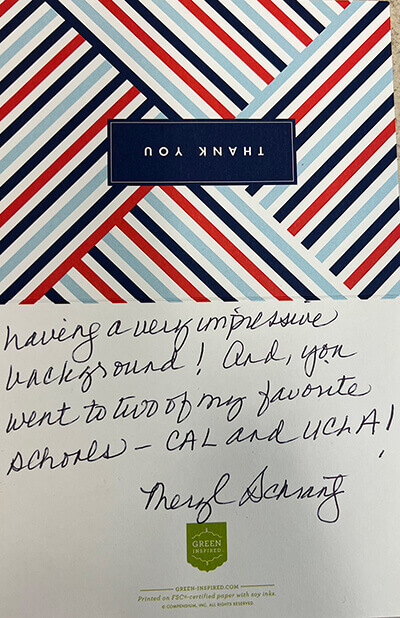 THANK YOU
having a very impressive
background! And, you
went to two of my favorite
schools – CAL and UCLA!
Meryl
GREEN
INSPIRED
GREEN-INSPIRED.COM
Printed on FSC®-certified paper with soy inks.
© COMPENDIUM, INC. ALL RIGHTS RESERVED.